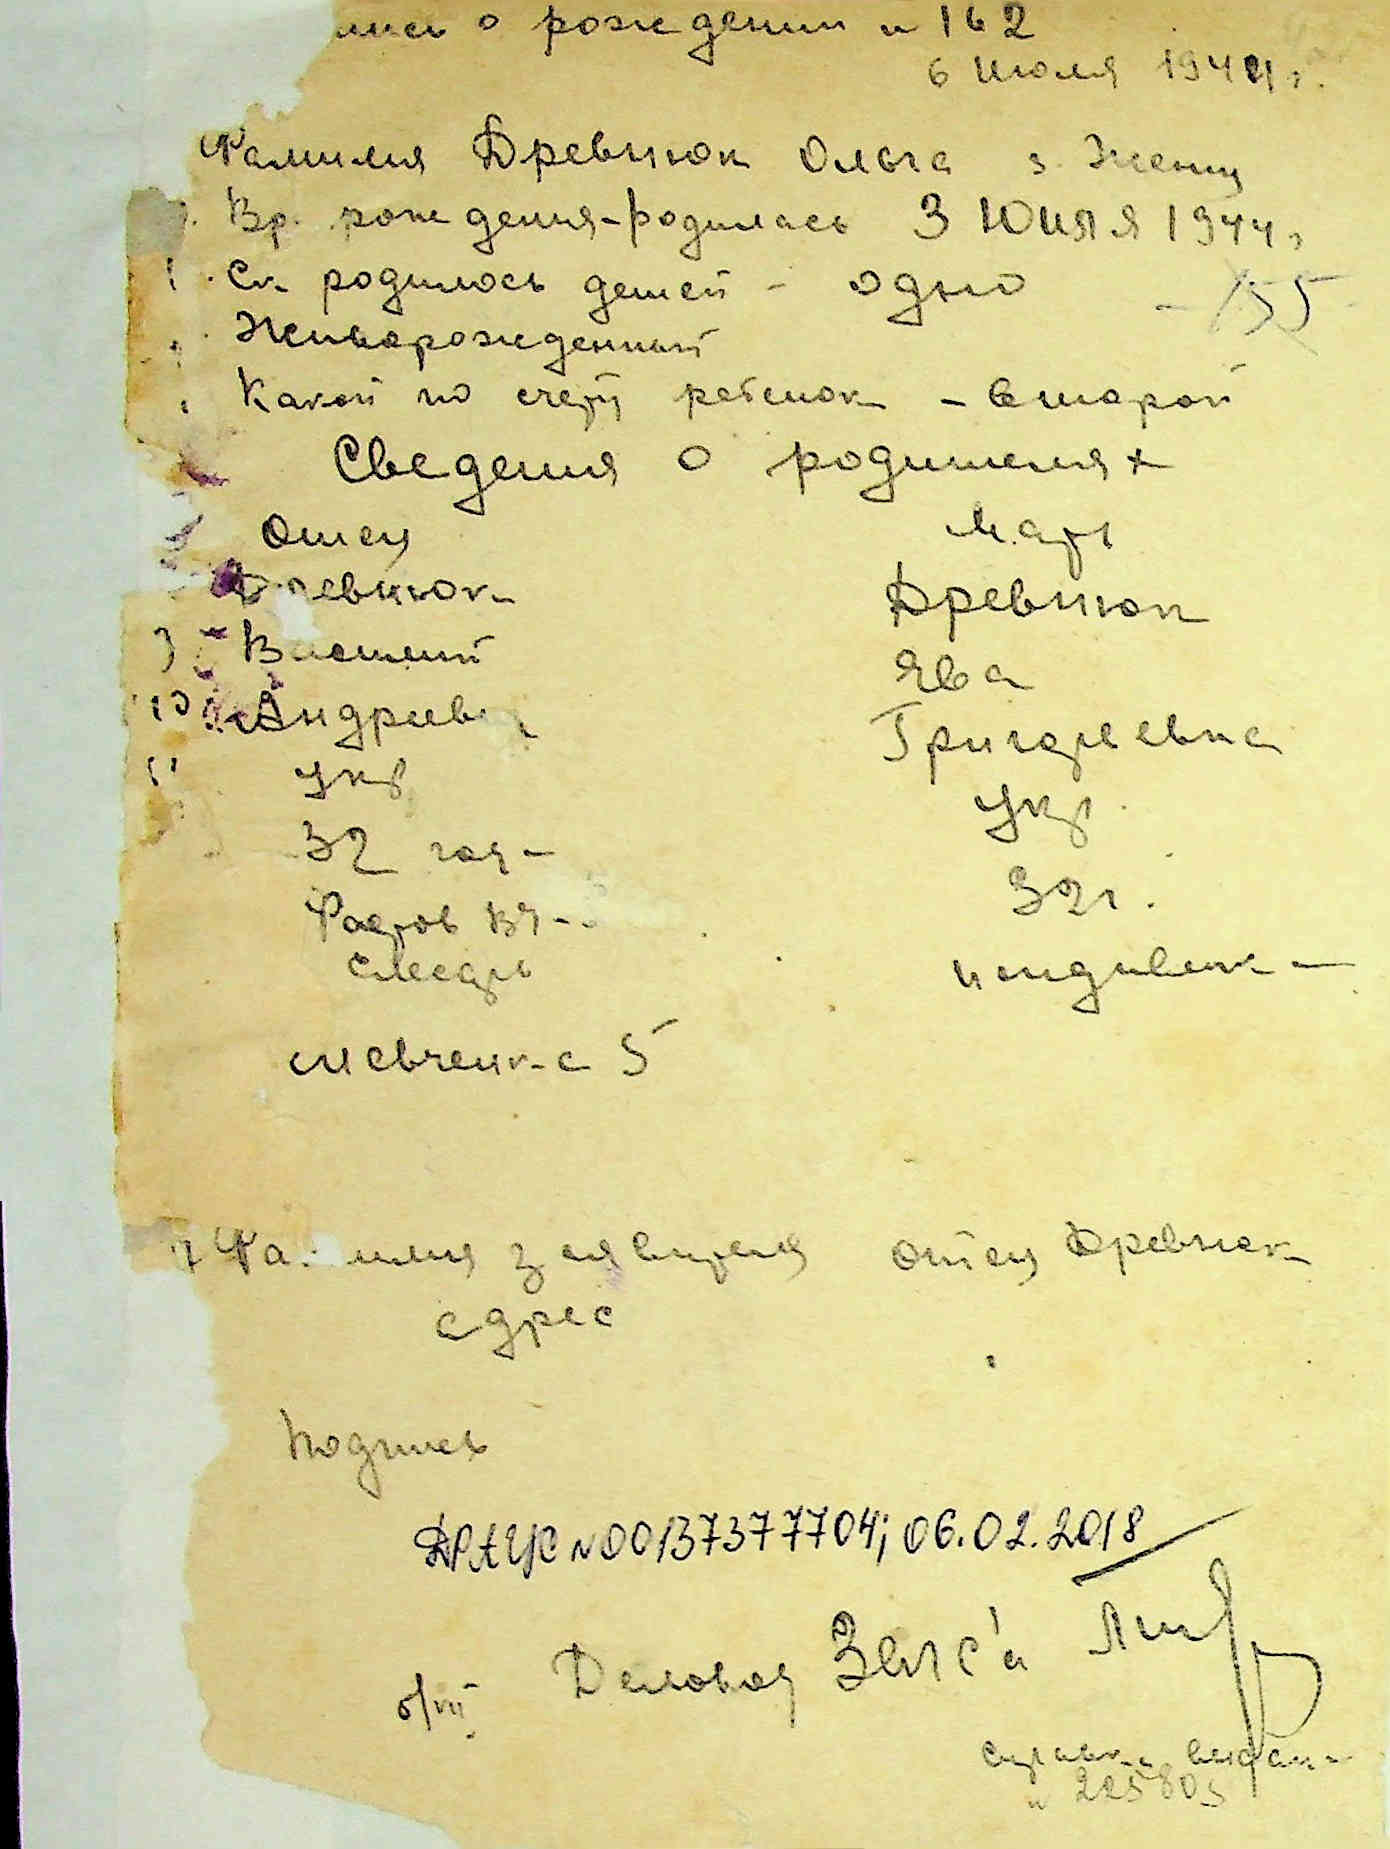 о рождении н 162
6 Июля 1944 г.
Фамилия Древнюк Ольга з. Женщ
Вр. рождения-родилась 3 Июля 1944 г
Ск родилось детей - одно
155
Живарожденный
Какой по счету ребенок - второй
Сведения о родителях
Отец Мать
Древнюк Древнюк
Василий Ява
10 Андреев Григорьевна
11 Укр Укр.
32 год - 32 г.
слесарь иждивен -
шевченка 5
заявителя отец Древнюк
адрес
Подпись
ДРАЦС N 00137377704; 06.02.2018
Деловод Загс'а
6/VII
справка выдан